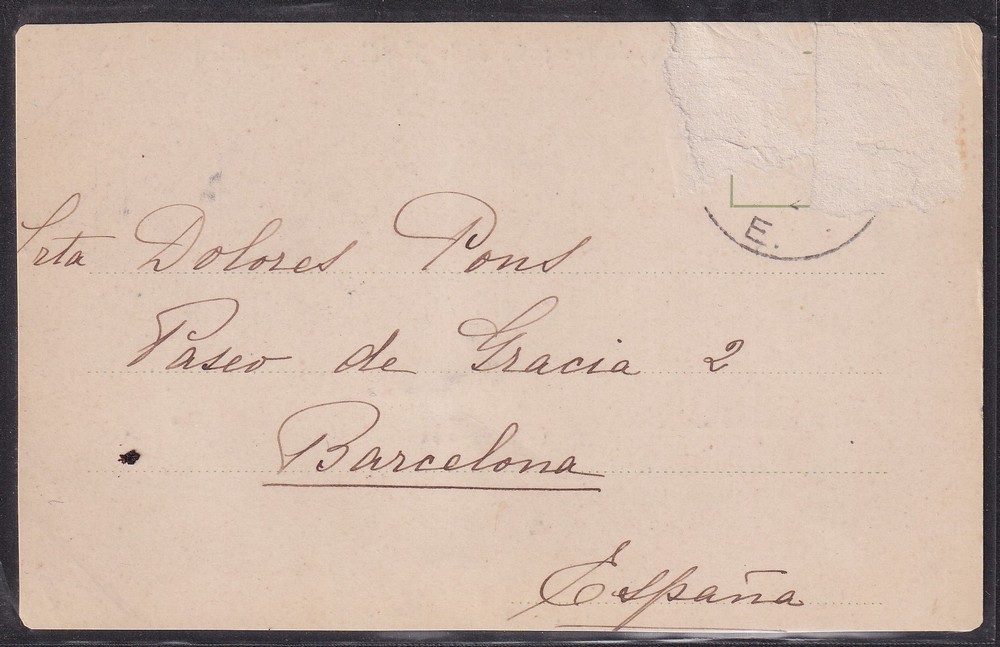 E.
Srta Dolores Pons
Paseo de Gracia 2
Barcelona
España